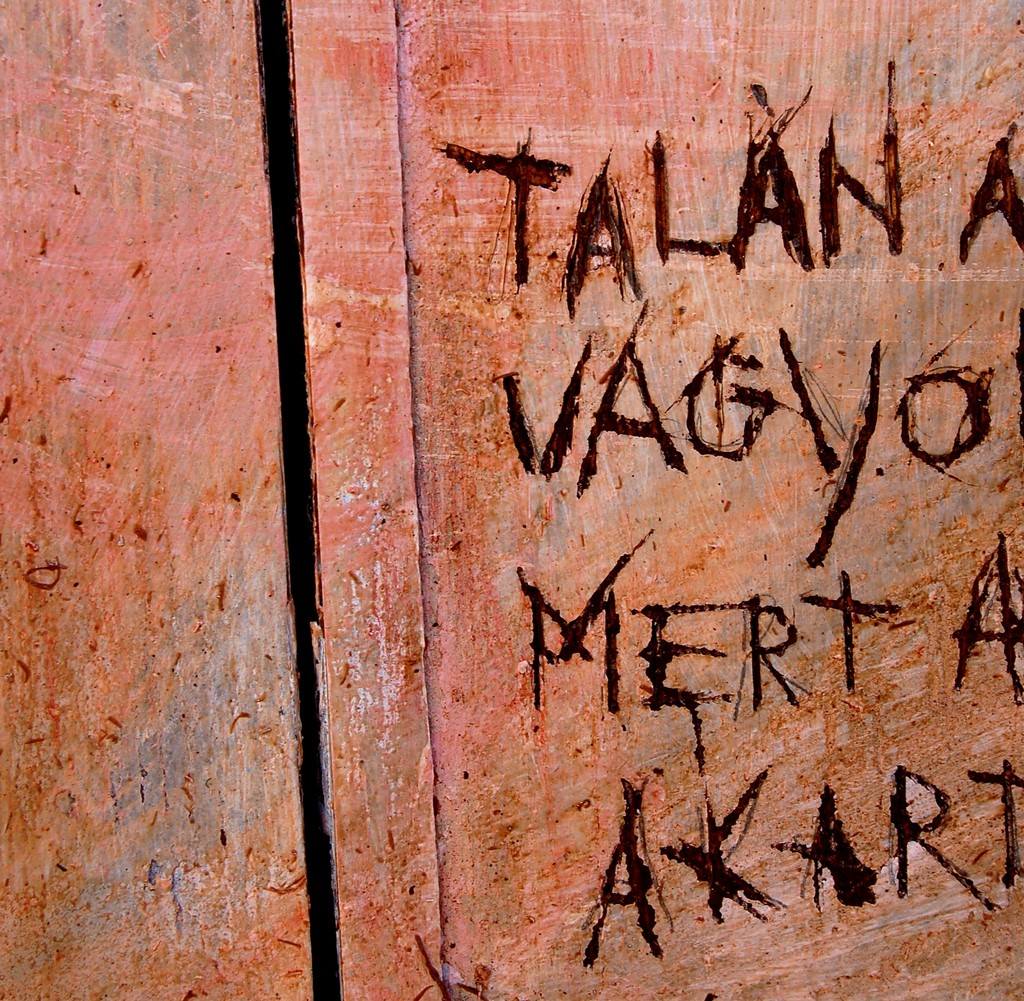 TALÁN A
VAGYO
MERT A
AKART